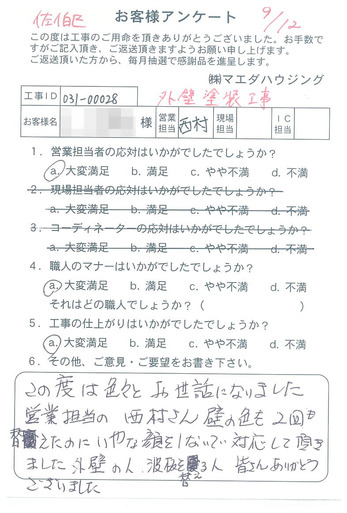 佐伯区
お客様アンケート
9/12
この度は工事のご用命を頂きありがとうございました。お手数で
すがご記入頂き、ご返送頂きますようお願い申し上げます。
ご返送頂いた方から、毎月抽選で感謝品を進呈します。
㈱マエダハウジング
工事ID 031-00028 外壁塗装工事
お客様名 様 営業担当 西村 現場担当 IC担当
1．営業担当者の応対はいかがでしたでしょうか？
a. 大変満足 b. 満足 c. やや不満 d. 不満
2．現場担当者の応対はいかがでしたでしょうか？
a. 大変満足 b. 満足 c. やや不満 d. 不満
3．コーディネーターの応対はいかがでしたでしょうか？
a. 大変満足 b. 満足 c. やや不満 d. 不満
4．職人のマナーはいかがでしたでしょうか？
a. 大変満足 b. 満足 c. やや不満 d. 不満
それはどの職人でしょうか？（ ）
5．工事の仕上がりはいかがでしたでしょうか？
a. 大変満足 b. 満足 c. やや不満 d. 不満
6．その他、ご意見・ご要望をお書き下さい。
この度は色々とお世話になりました
営業担当の 西村さん 壁の色も 2回も
替えたのに いやな顔をしないで 対応して頂き
ました 外壁の人、波板を替える人 皆さん ありがとう
ございました